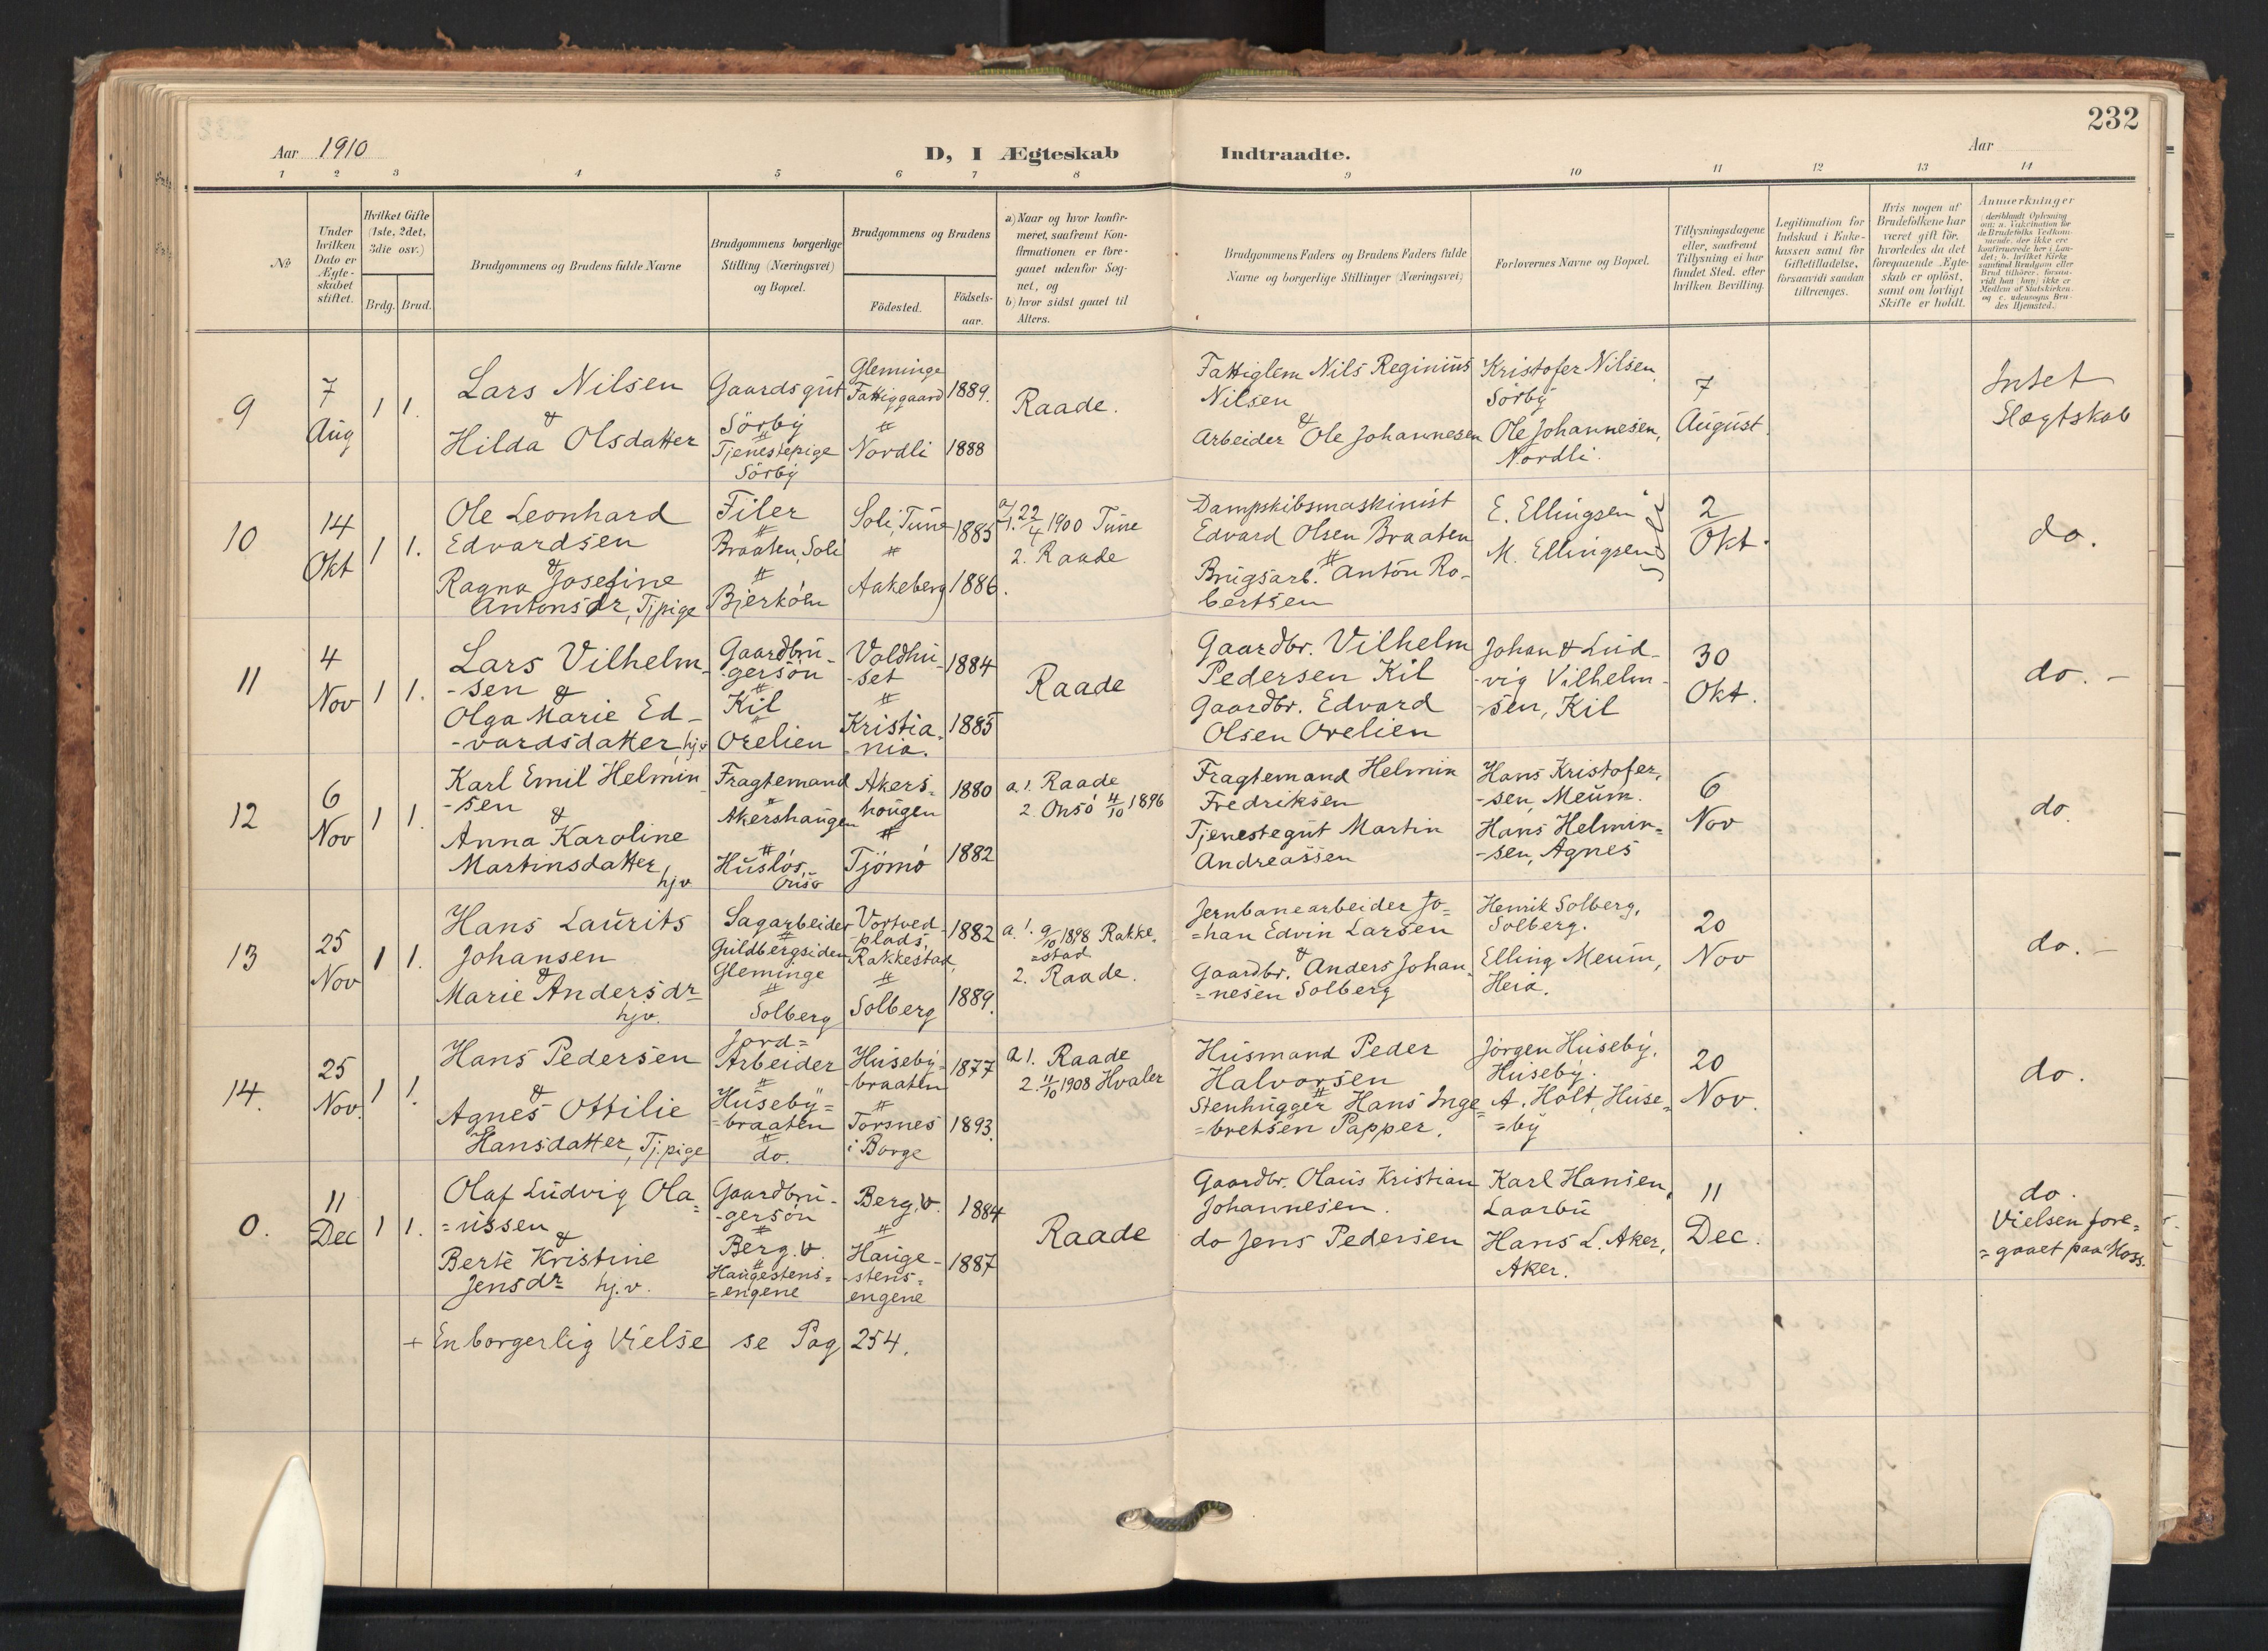 232
Aar 1910
D, I Ægteskab Indtraadte.
Aar
1 2 3 4 5 6 7 8 9 10 11 12 13 14
№
Under hvilken Dato er Ægteskabet stiftet.
Hvilket Gifte (1ste, 2det, 3die osv.)
Brdg. Brud.
Brudgommens og Brudens fulde Navne
Brudgommens borgerlige Stilling (Næringsvei) og Bopæl.
Brudgommens og Brudens
Födested.
Födselsaar.
a) Naar og hvor konfirmeret, saafremt Konfirmationen er foregaaet udenfor Sognet, og
b) hvor sidst gaaet til Alters.
Brudgommens Faders og Brudens Faders fulde Navne og borgerlige Stillinger (Næringsvei)
Forlovernes Navne og Bopæl.
Tillysningsdagene eller, saafremt Tillysning ei har fundet Sted, efter hvilken Bevilling.
Legitimation for Indskud i Enkekassen samt for Giftetilladelse, forsaavidt saadan tiltrænges.
Hvis nogen af Brudefolkene har været gift för, hvorledes da det foregaaende Ægteskab er oplöst, samt om lovligt Skifte er holdt.
Anmerkninger
(deriblandt Oplysning om: a. Vakcination for de Brudefolks Vedkommende, der ikke ere konfirmerede her i Landet; b. hvilket Kirkesamfund Brudgom eller Brud tilhörer, forsaavidt han (hun) ikke er Medlem af Statskirken, og c. udensogns Brudes Hjemsted.)
9
7
Aug
1 1.
Lars Nilsen
&
Hilda Olsdatter
Gaardsgut
Sörby
"
Tjenestepige
Sörby
Gleminge
Fattiggaard
"
Nordli
1889.
1888
Raade.
Fattiglem Nils Reginius
Nilsen
&
Arbeider Ole Johannesen
Kristofer Nilsen,
Sörby
Ole Johannesen,
Nordli.
7
August.
Intet
Slægtskab
10
14
Okt
1 1.
Ole Leonhard
Edvardsen
&
Ragna Josefine
Antonsdr, Tjpige
Filer
"
Braaten, Soli
"
Bjerköen
Soli, Tune
"
Aakeberg
1885
1886.
a/1. 22/4 1900 Tune
2. Raade
Dampskibsmaskinist
Edvard Olsen Braaten
"
Brugsarb. Anton Ro-
bertsen
E. Ellingsen
M. Ellingsen
2
Okt.
do.
11
4
Nov
1 1.
Lars Vilhelm-
-sen &
Olga Marie Ed-
-vardsdatter, hjv
Gaardbru-
-gersön
"
Kil
"
Orelien
Voldhu-
-set
"
Kristia-
-nia.
1884
1885
Raade
Gaardbr. Vilhelm
Pedersen Kil
Gaardbr. Edvard
Olsen Orelien
Johan & Lud-
-vig Vilhelm-
-sen, Kil
30
Okt.
do. -
12
6
Nov
1 1.
Karl Emil Helmin-
-sen
&
Anna Karoline
Martinsdatter,
hjv
Fragtemand
"
Akershaugen
"
Huslös,
Onsö
Akers-
hougen
"
Tjömö
1880
1882
a. 1. Raade
2. Onsö 4/10 1896
Fragtemand Helmin
Fredriksen
Tjenestegut Martin
Andreassen
Hans Kristofer-
-sen, Meum.
Hans Helmin=
-sen, Agnes
6
Nov
do.
13
25
Nov
1 1.
Hans Laurits
Johansen
&
Marie Andersdr
hjv.
Sagarbeider
"
Guldbergsiden
Gleminge
"
Solberg
Vortved-
-plads,
Rakkestad,
"
Solberg
1882
1889.
a. 1. 9/10 1898 Rakke-
=stad
2. Raade.
Jernbanearbeider Jo=
=han Edvin Larsen
&
Gaardbr. Anders Johan-
=nesen Solberg
Henrik Solberg,
Solberg.
Elling Meum,
Heia.
20
Nov
do. -
14.
25
Nov.
1 1.
Hans Pedersen
&
Agnes Ottilie
Hansdatter, Tj.pige
Jord=
Arbeider
"
Huseby=
=braaten
"
do.
Huseby-
-braaten
"
Torsnes
i Borge
1877
1893.
a 1. Raade
2. 11/10 1908 Hvaler
Husmand Peder
Halvorsen
"
Stenhugger Hans Inge=
=bretsen Papper.
Jörgen Huseby,
Huseby.
A. Holt, Huse-
=by
20
Nov.
do.
0.
11
Dec
1 1.
Olaf Ludvig Ola=
=ussen
&
Berte Kristine
Jensdr hj.v.
Gaardbru-
-gersön
"
Berg. v.
"
Haugestens=
=engene
Berg. v.
"
Hauge-
-stens=
engene
1884
1887
Raade
Gaardbr. Olaus Kristian
Johannesen.
do Jens Pedersen
Karl Hansen,
Laarbu
Hans L. Aker,
Aker.
11
Dec.
do.
Vielsen fore=
=gaaet paa Moss.
+ En borgerlig Vielse se Pag 254.